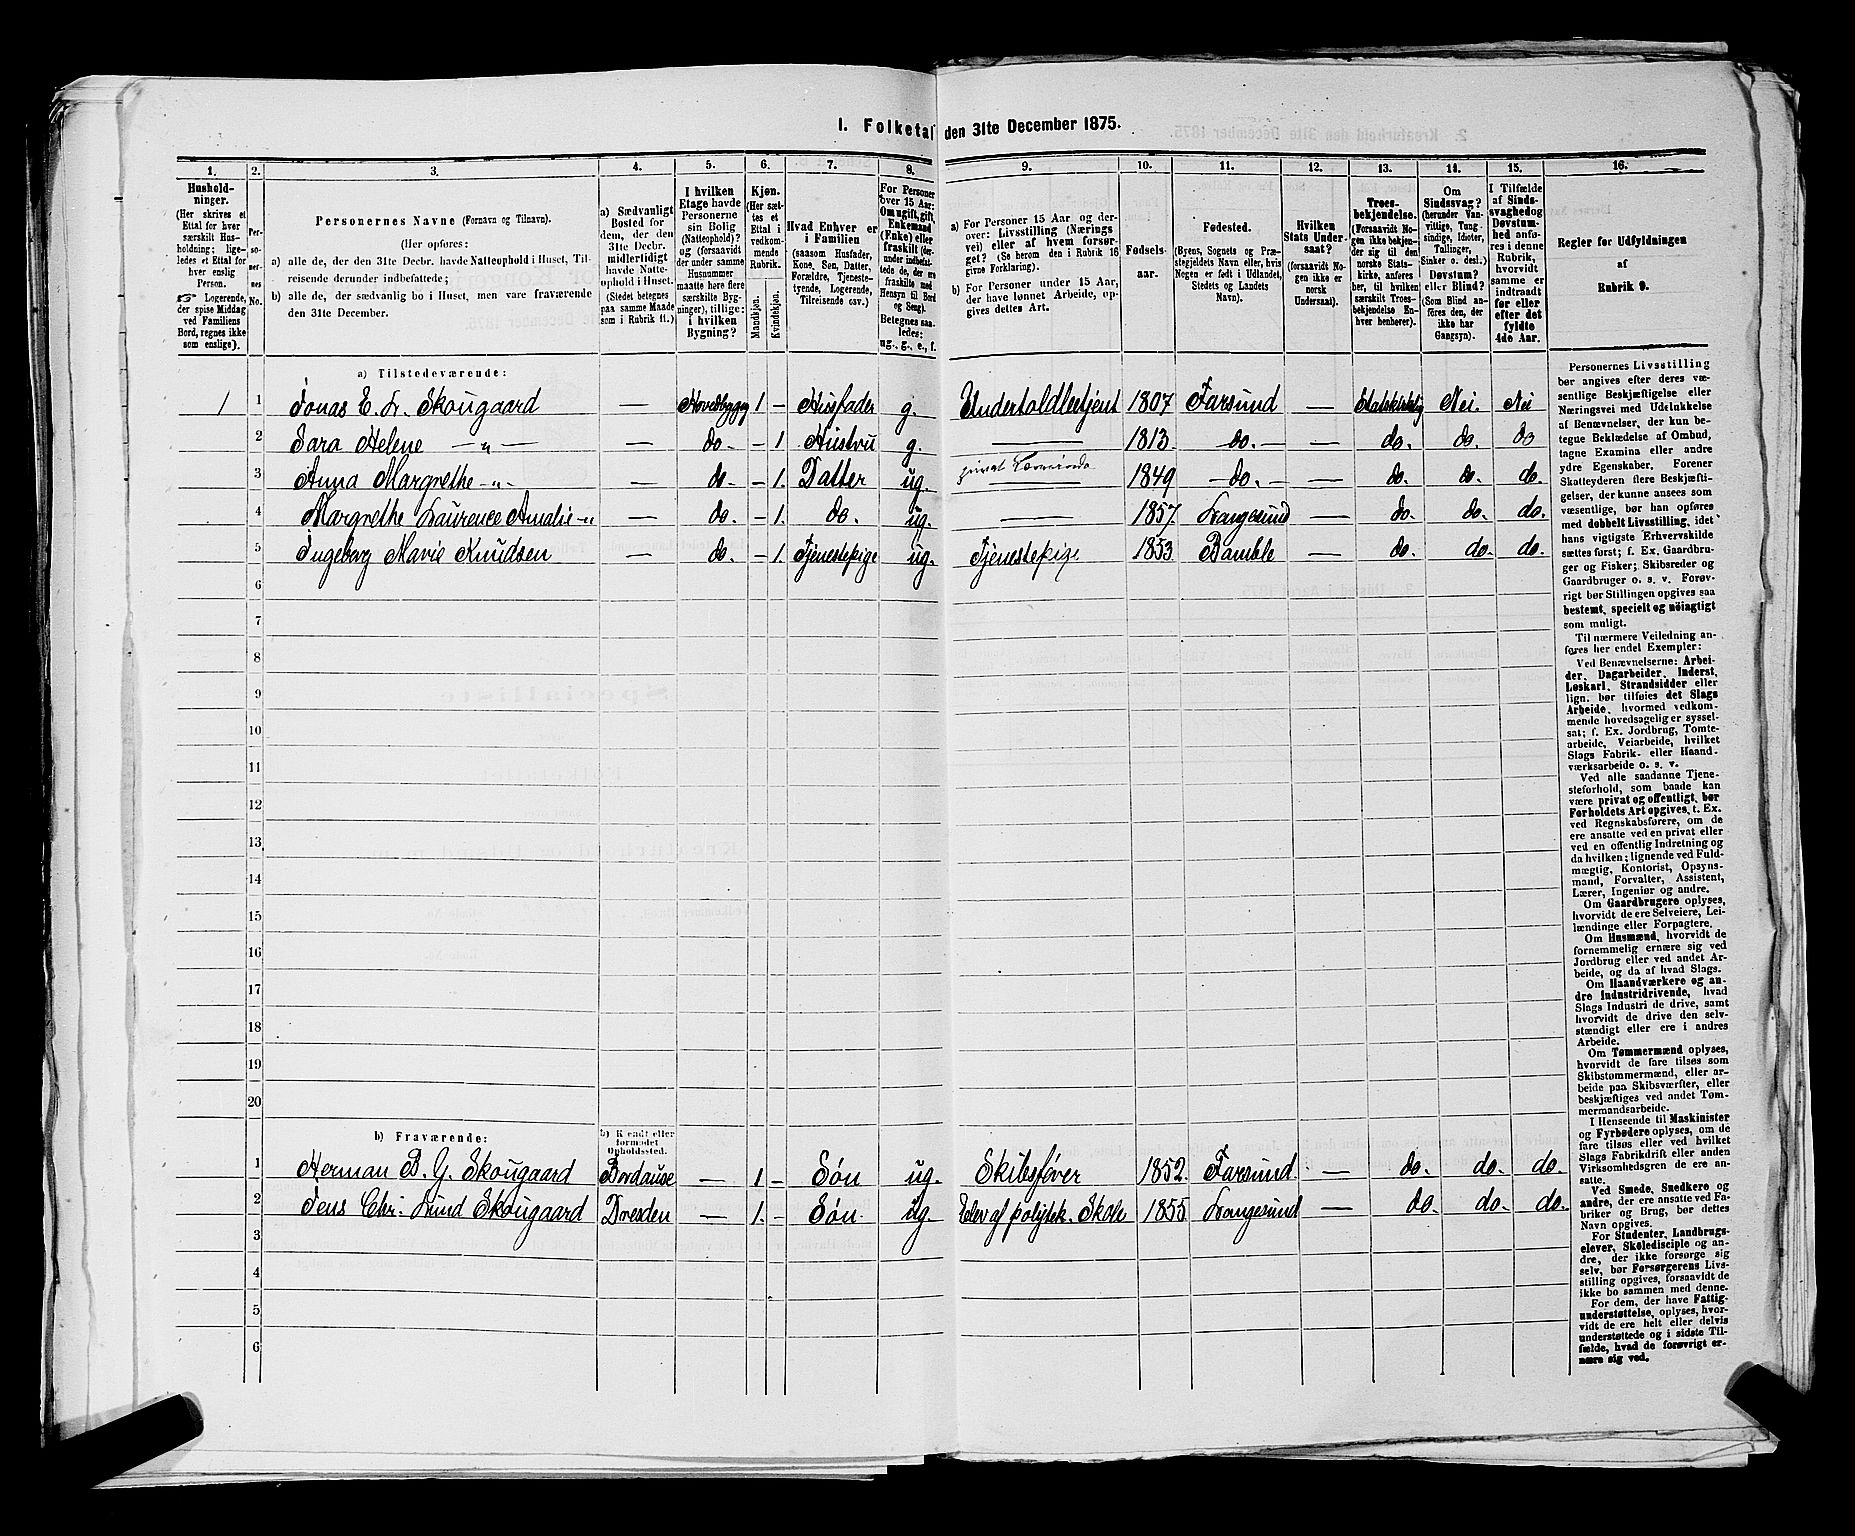 1. Folketal den 31te December 1875.
1. 2. 3. 4. 5. 6. 7. 8. 9. 10. 11. 12. 13. 14. 15. 16.
Hushold-
ninger.
(Her skrives et
Ettal for hver
særskilt Hus-
holdning; lige-
ledes et Ettal for
hver enslig
Person.
☞ Logerende,
der spise Middag
ved Familiens
Bord, regnes ikke
som enslige).
Per-
so-
ner-
nes
No.
Personernes Navne (Fornavn og Tilnavn).
(Her opføres:
a) alle de, der den 31te Decbr. havde Natteophold i Huset, Til-
reisende derunder indbefattede;
b) alle de, der sædvanlig bo i Huset, men vare fraværende
den 31te December.
a) Sædvanligt
Bosted for
dem, der den
31te Decbr.
midlertidigt
havde Natte-
ophold i Huset.
(Stedet betegnes
paa samme Maade
som i Rubrik 11.)
I hvilken
Etage havde
Personerne
sin Bolig
(Natteophold)?
og (forsaavidt
der under samme
Husnummer
maatte høre flere
særskilte Byg-
ninger), tillige:
i hvilken
Bygning?
Kjøn.
(Her sæt-
tes et
Ettal i
vedkom-
mende
Rubrik.
Mandkjøn.
Kvindekjøn.
Hvad Enhver er
i Familien
(saasom Husfader,
Kone, Søn, Datter,
Forældre, Tjeneste-
tyende, Logerende,
Tilreisende osv.)
For Personer
over 15 Aar:
Om ugift, gift,
Enkemand
(Enke) eller
fraskilt (her-
under indbefat-
tede de, der ere
fraskilte med
Hensyn til Bord
og Seng).
Betegnes saa-
ledes:
ug., g., e., f.
a) For Personer 15 Aar og der-
over: Livsstilling (Nærings
vei) eller af hvem forsør-
get? (Se herom den i Rubrik 16
givne Forklaring).
b) For Personer under 15 Aar,
der have lønnet Arbeide, op-
gives dettes Art.
Fødsels-
aar.
Fødested.
(Byens, Sognets og Præ-
stegjeldets Navn eller, hvis
Nogen er født i Udlandet,
Stedets og Landets
Navn).
Hvilken
Stats Under-
saat?
(forsaavidt No-
gen ikke er
norsk
Undersaat).
Troes-
bekjendelse.
(Forsaavidt No-
gen ikke bekjen-
der sig til den
norske Stats-
kirke, anføres
her, til hvilken
særskilt Troes-
bekjendelse En-
hver henhører).
Om
Sindssvag?
(herunder Van-
vittige, Tung-
sindige, Idioter,
Tullinger,
Sinker o. desl.)
Døvstum?
eller Blind?
(Som Blind an-
føres den, der
ikke har
Gangsyn).
I Tilfælde
af Sinds-
svaghed og
Døvstum-
hed anfø-
res i denne
Rubrik,
hvorvidt
samme er
indtraadt
før eller
efter det
fyldte
4de Aar.
Regler for Udfyldningen
af
Rubrik 9.
a) Tilstedeværende:
1 1 Jonas E. L. Skougaard — Hovedbygg 1 – Husfader g. Undertoldbetjent 1807 Farsund — Statskirkelig Nei. Nei
2 Sara Helene — „ — — do – 1 Hustru g. — 1813 do. — do. do. do
3 Anna Margrethe - „ - — do – 1. Datter ug. privat 1849 do. — do. do. do.
4 Margrethe Laurence Amalie - „ — do. – 1. do. ug. — 1857. Langesund — do. do. do.
5 Ingeborg Marie Knudsen — do. – 1. Tjenestepige ug. Tjenestepige 1853 Bamble — do. do. do.
6
7
8
9
10
11
12
13
14
15
16
17
18
19
20
b) Fraværende:
b) Kjendt eller
formodet
Opholdssted.
1 Herman B. G. Skougaard Bordaux — 1 – Søn ug. Skibsfører 1852. Farsund. — do. do. do.
2 Jens Chr. Lund Skougaard Dresden — 1. – Søn ug. Elev af polytek. Skole 1855 Langesund — do. do. do.
3
4
5
6
Personernes Livsstilling
bør angives efter deres væ-
sentlige Beskjæftigelse eller
Næringsvei med Udelukkelse
af Benævnelser, der kun be-
tegne Beklædelse af Ombud,
tagne Examina eller andre
ydre Egenskaber. Forener
Skatteyderen flere Beskjæfti-
gelser, der kunne ansees som
væsentlige, bør han opføres
med dobbelt Livsstilling, idet
hans vigtigste Erhvervskilde
sættes først; f. Ex. Gaardbru-
ger og Fisker; Skibsreder og
Gaardbruger o. s. v. Forøv-
rigt bør Stillingen opgives saa
bestemt, specielt og nøiagtigt
som muligt.
Til nærmere Veiledning an-
føres her endel Exempler:
Ved Benævnelserne: Arbei-
der, Dagarbeider, Inderst,
Løskarl, Strandsidder eller
lign. bør tilføies det Slags
Arbeide, hvormed vedkom-
mende hovedsagelig er syssel-
sat; f. Ex. Jordbrug, Tomte-
arbeide, Veiarbeide, hvilket
Slags Fabrik- eller Haand-
værksarbeide o. s. v.
Ved alle saadanne Tjene-
steforhold, som baade kan
være privat og offentligt, bør
Forholdets Art opgives, t. Ex.
ved Regnskabsførere, om de
ere ansatte ved en privat eller
ved en offentlig Indretning og
da hvilken; lignende ved Fuld-
mægtig, Kontorist, Opsyns-
mand, Forvalter, Assistent,
Lærer, Ingeniør og andre.
Om Gaardbrugere oplyses,
hvorvidt de ere Selveiere, Lei-
lændinge eller Forpagtere.
Om Husmænd, hvorvidt de
fornemmelig ernære sig ved
Jordbrug eller ved andet Ar-
beide, og da af hvad Slags.
Om Haandværkere og an-
dre Industridrivende, hvad
Slags Industri de drive, samt
hvorvidt de drive den selv-
stændigt eller ere i andres
Arbeide.
Om Tømmermænd oplyses,
hvorvidt de fare tilsøs som
Skibstømmermænd, eller ar-
beide paa Skibsværfter, eller
beskjæftiges ved andet Tøm-
mermandsarbeide.
I Henseende til Maskinister
og Fyrbødere oplyses, om de
fare tilsøs eller ved hvilket
Slags Fabrikdrift eller anden
Virksomhedsgren de ere an-
satte.
Ved Smede, Snedkere og
andre, der ere ansatte ved Fa-
briker og Brug, bør dettes
Navn opgives.
For Studenter, Landbrugs-
elever, Skoledisciple og an-
dre, der ikke forsørge sig
selv, bør Forsørgerens Livs-
stilling opgives, forsaavidt de
ikke bo sammen med denne.
For dem, der have Fattig-
understøttelse, oplyses, hvor-
vidt de ere helt eller delvis
understøttede og i sidste Til-
fælde, hvad de forøvrigt er-
nære sig ved.